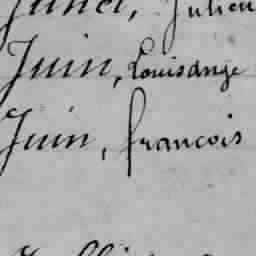 Julien
Juin, Louisange
Juin, françois